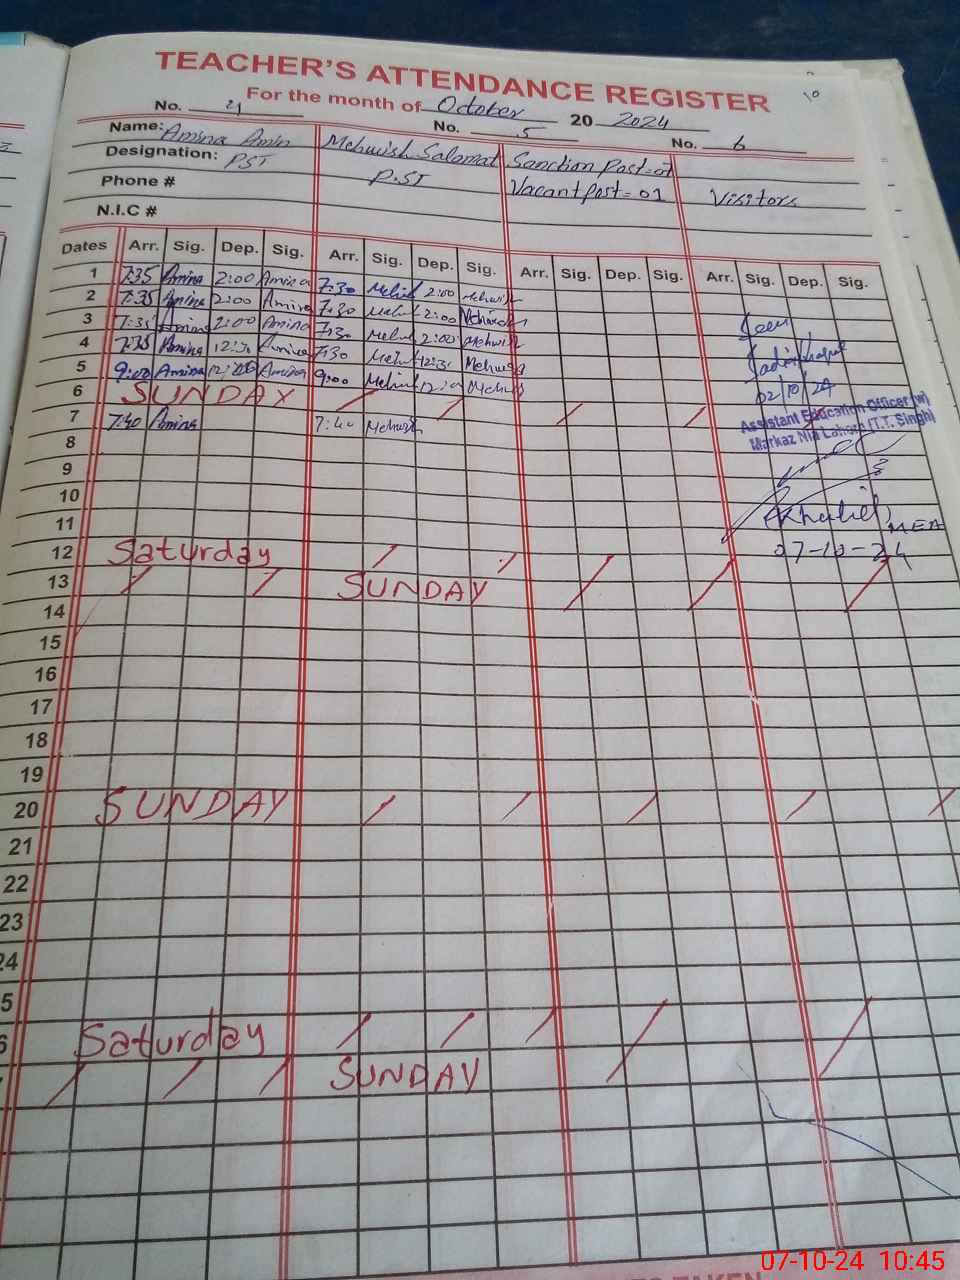 TEACHER'S ATTENDANCE REGISTER
For the month of October 2024
10
No. 4 No. 5 No. 6
Name: Amina Amin Mehwish Salamat Sanction Post=07
Designation: PST P.ST Vacant Post=01 Visitors
Phone #
N.I.C #
Dates Arr. Sig. Dep. Sig. Arr. Sig. Dep. Sig. Arr. Sig. Dep. Sig. Arr. Sig. Dep. Sig.
1 7:35 Amina 2:00 Amina 7:30 Mehwi 2:00 Mehwish
2 7:35 Amina 2:00 Amina 7:30 Mehwi 2:00 Mehwish
3 7:35 Amina 2:00 Amina 7:30 Mehwi 2:00 Mehwish
4 7:35 Amina 12:30 Amina 7:30 Mehwi 12:30 Mehwish
5 9:00 Amina 12:00 Amina 9:00 Mehwi 12:00 Mehwish
Seen
02/10/24
Assistant Education Officer (w)
Markaz Nia Lahore (T.T. Singh)
6 SUNDAY
7 7:40 Amina 7:40 Mehwish
8
9
10
11
(Khalil) MEA
07-10-24
12 Saturday
13 SUNDAY
14
15
16
17
18
19
20 SUNDAY
21
22
23
24
5
6 Saturday
SUNDAY
07-10-24 10:45